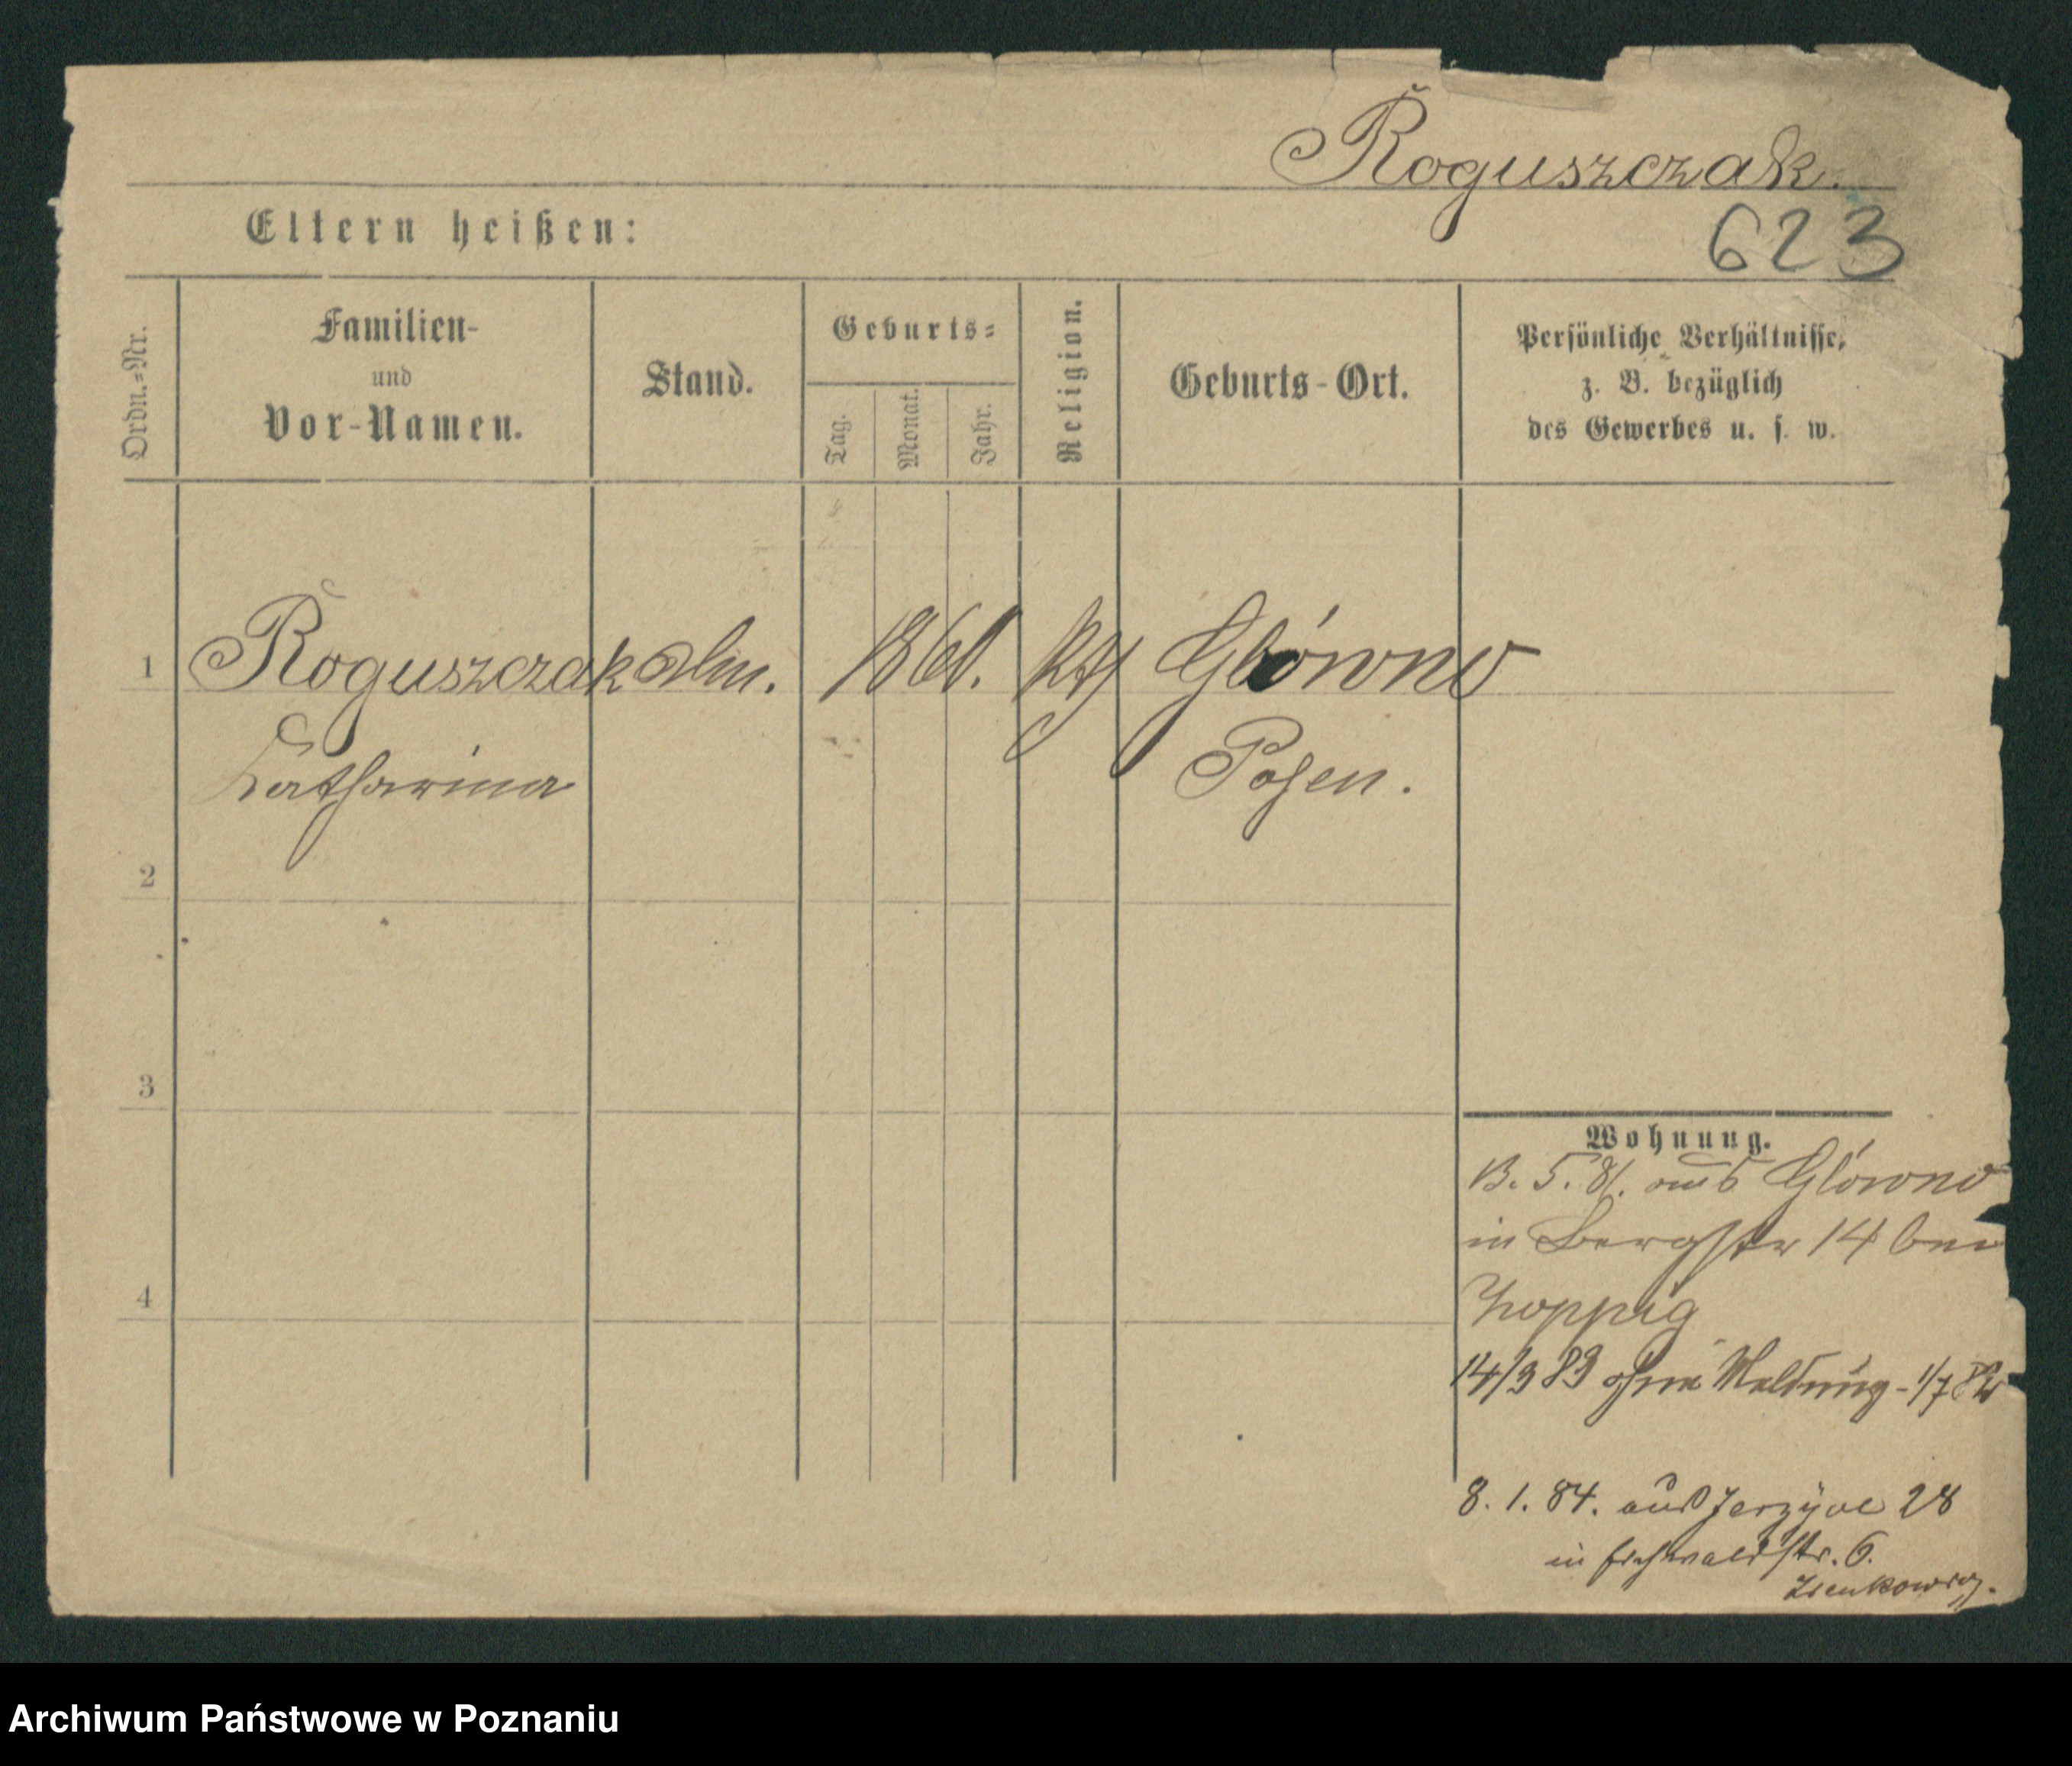 Roguszczak.
623
Eltern heißen:
Ordn.=Nr.
Familien-
und
Vor-Namen.
Stand.
Geburts=
Tag.
Monat.
Jahr.
Religion.
Geburts-Ort.
Persönliche Verhältnisse,
z. B. bezüglich
des Gewerbes u. s. w.
1
Roguszczak
Catharina
Główno
Posen.
2
3
4
Wohnung.
5. 81. aus Główno
in Bergstr 14 bei
14/3 83 ohne Meldung - 1/7
8. 1. 84. aus Jerzyce 28
in Eichwaldstr. 6.
Archiwum Państwowe w Poznaniu